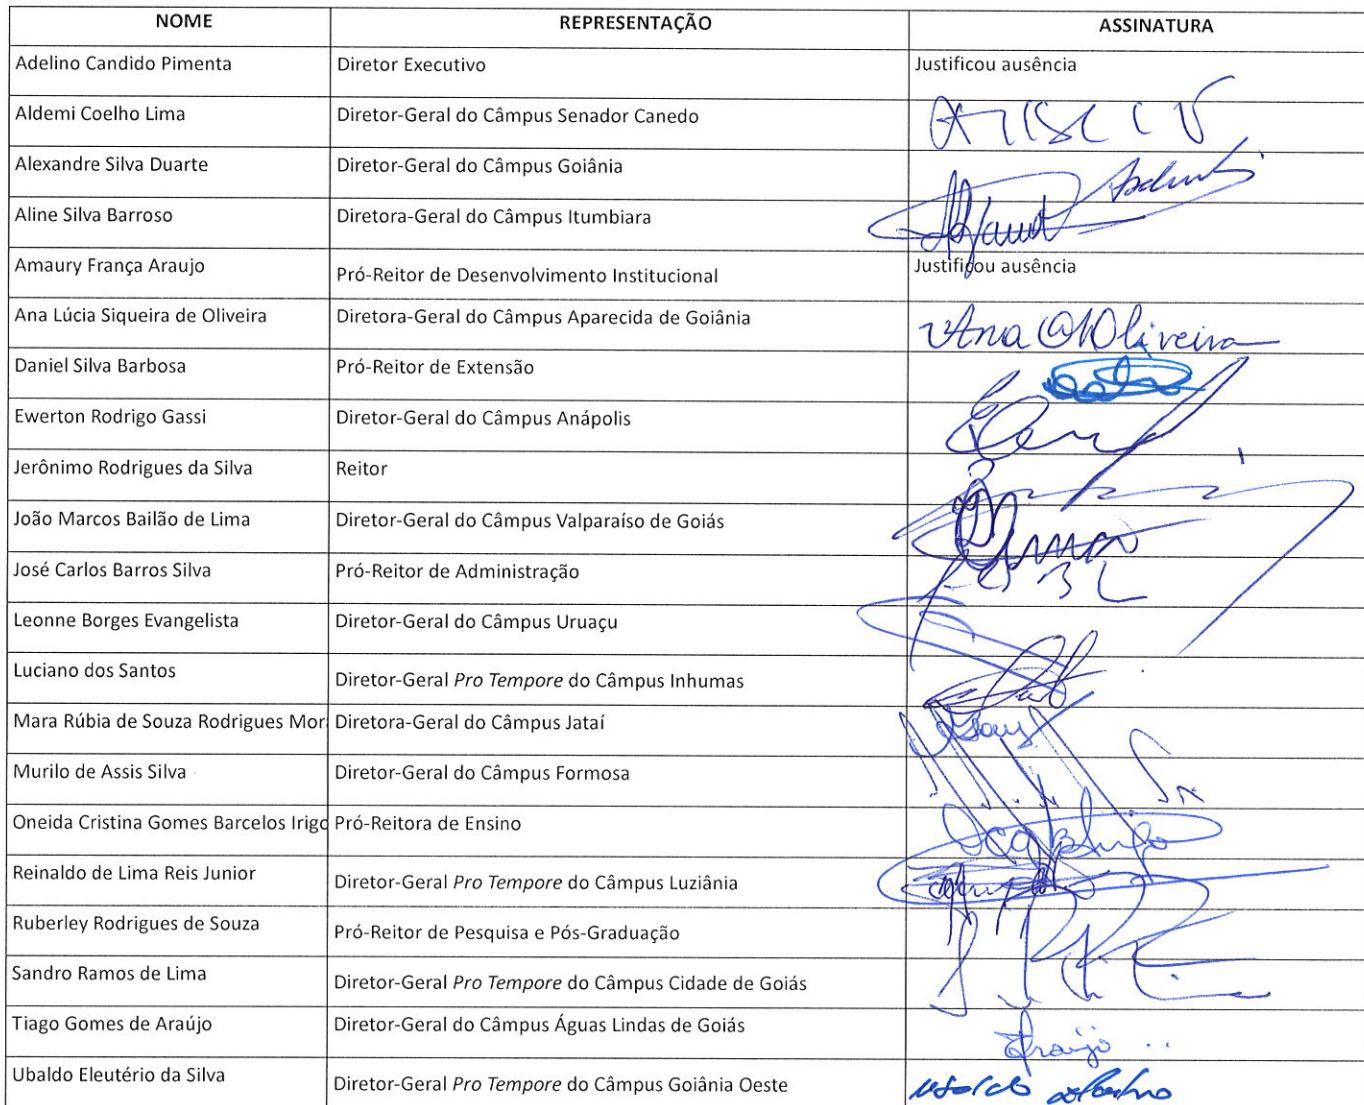 NOME REPRESENTAÇÃO ASSINATURA
Adelino Candido Pimenta Diretor Executivo Justificou ausência
Aldemi Coelho Lima Diretor-Geral do Câmpus Senador Canedo
Alexandre Silva Duarte Diretor-Geral do Câmpus Goiânia
Aline Silva Barroso Diretora-Geral do Câmpus Itumbiara
Amaury França Araujo Pró-Reitor de Desenvolvimento Institucional Justificou ausência
Ana Lúcia Siqueira de Oliveira Diretora-Geral do Câmpus Aparecida de Goiânia Ana Oliveira
Daniel Silva Barbosa Pró-Reitor de Extensão
Ewerton Rodrigo Gassi Diretor-Geral do Câmpus Anápolis
Jerônimo Rodrigues da Silva Reitor
João Marcos Bailão de Lima Diretor-Geral do Câmpus Valparaíso de Goiás
José Carlos Barros Silva Pró-Reitor de Administração
Leonne Borges Evangelista Diretor-Geral do Câmpus Uruaçu
Luciano dos Santos Diretor-Geral Pro Tempore do Câmpus Inhumas
Mara Rúbia de Souza Rodrigues Mor Diretora-Geral do Câmpus Jataí
Murilo de Assis Silva Diretor-Geral do Câmpus Formosa
Oneida Cristina Gomes Barcelos Irigo Pró-Reitora de Ensino
Reinaldo de Lima Reis Junior Diretor-Geral Pro Tempore do Câmpus Luziânia
Ruberley Rodrigues de Souza Pró-Reitor de Pesquisa e Pós-Graduação
Sandro Ramos de Lima Diretor-Geral Pro Tempore do Câmpus Cidade de Goiás
Tiago Gomes de Araújo Diretor-Geral do Câmpus Águas Lindas de Goiás Araújo
Ubaldo Eleutério da Silva Diretor-Geral Pro Tempore do Câmpus Goiânia Oeste